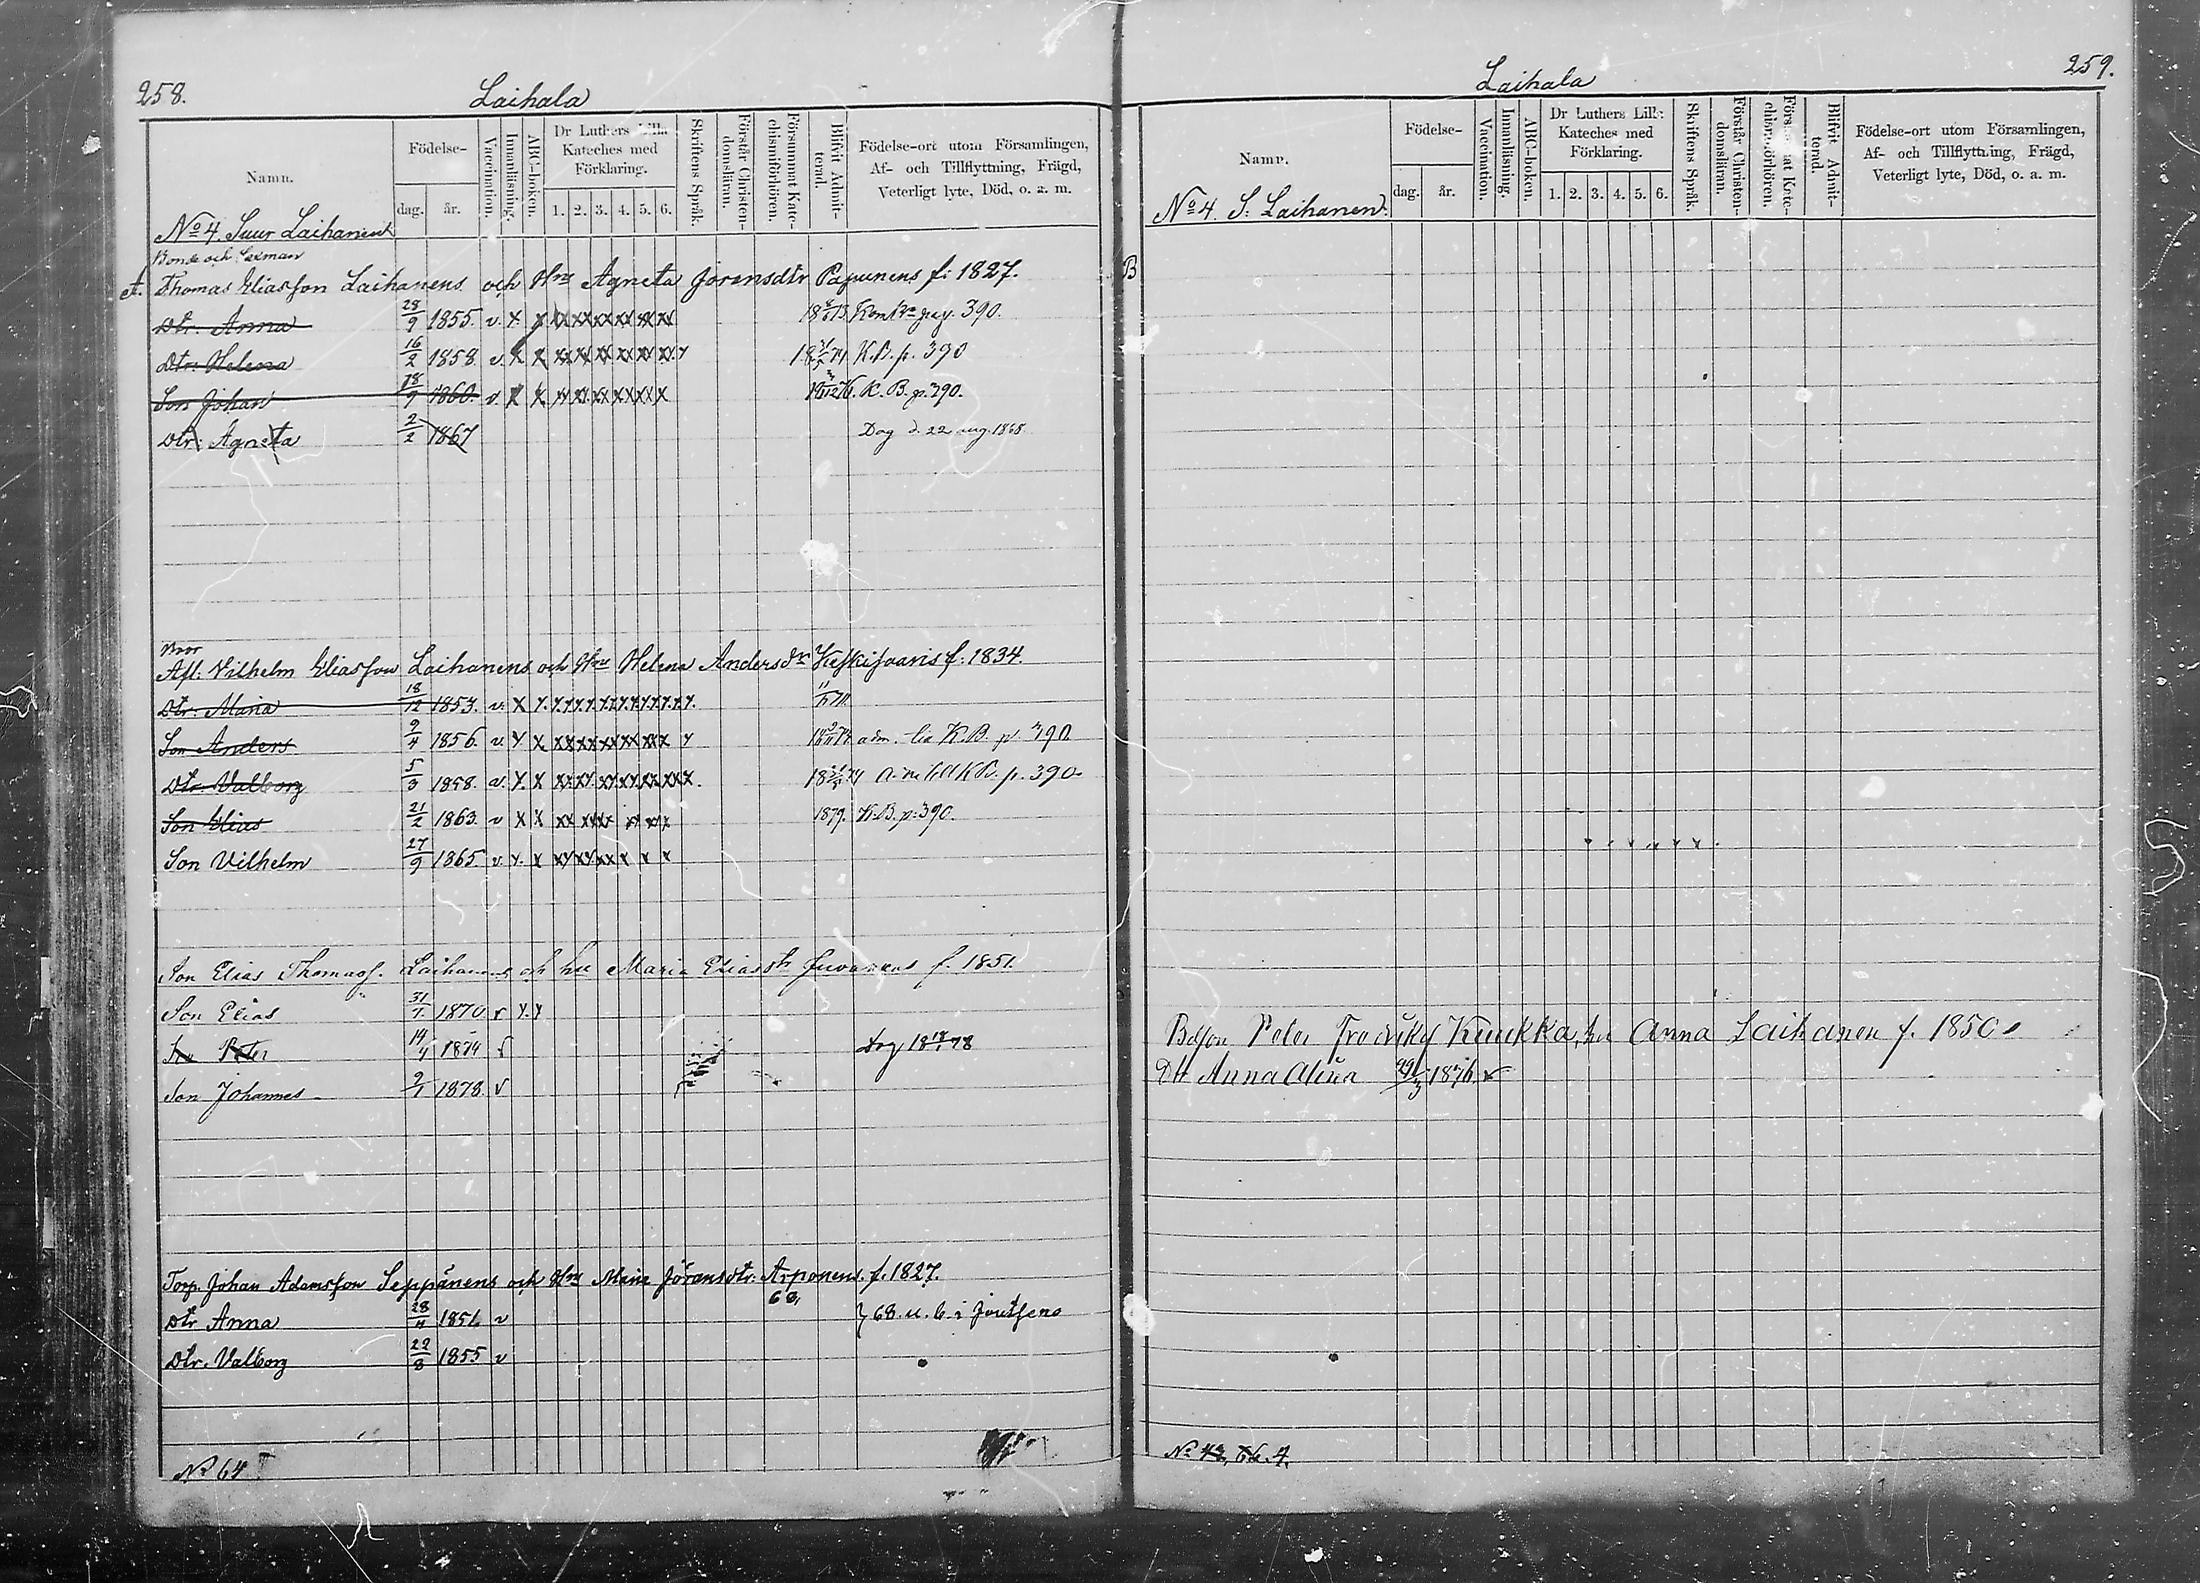 258.
Laihala
Namn.
Födelse-
dag.
år.
Vaccination.
Innanläsning.
ABC-boken.
Dr Luthers Lilla
Kateches med
Förklaring.
1. 2. 3. 4. 5. 6.
Skriftens Språk.
Förstår Christen-
domsläran.
Försummat Kate-
chismiförhören.
Blifvit Admit-
terad.
Födelse-ort utom Församlingen,
Af- och Tillflyttning, Frägd,
Veterligt lyte, Död, o. a. m.
No 4. Suur Laihanen
Bonde och
A. Thomas Eliasson Laihanens och Hru Agneta Jöransdtr Papunens f: 1827.
Dtr: Anna 28/9 1855. v. x 390.
Dtr: Helena 16/2 1858 v. x x K.B. p. 390
Son Johan 18/9 1860. v. x x K.B. p. 390.
Dtr: Agneta 2/2 1867 Dog d. 22 aug. 1868
Afl: Vilhelm Eliasson Laihanens och Hru Helena Andersdr Keskisaaris f: 1834.
Dtr: Maria 18/12 1853. v. x
Son Anders 9/4 1856. v. x x adm. K.B. p. 390
Dtr Valborg 5/3 1858. v. x x p. 390
Son Elias 21/2 1863. v x x 1879. K.B. p. 390.
Son Vilhelm 27/9 1865. v. x. x
Son Elias Thomasf. Laihanens och hu Maria Eliasdtr Juvonens f. 1851.
Son Elias 31/7 1870 v x x
Son Peter 1874 v dog
Son Johannes 1878. v
Torp. Johan Adamsson Seppänens och Hru Maria Jöransdtr: Arponens f. 1827.
68,
Dtr Anna 1851 v } 68. u. b. i Joutseno
Dtr. Valborg 22/8 1855 v
No 64
Laihala
259.
Namn.
Födelse-
dag.
år.
Vaccination.
Innanläsning.
ABC-boken.
Dr Luthers Lilla
Kateches med
Förklaring.
1. 2. 3. 4. 5. 6.
Skriftens Språk.
Förstår Christen-
domsläran.
Försummat Kate-
chismiförhören.
Blifvit Admit-
terad.
Födelse-ort utom Församlingen,
Af- och Tillflyttning, Frägd,
Veterligt lyte, Död, o. a. m.
No 4. S: Laihanen.
B
Peter Kuukka, hu Anna Laihanen f. 1850
Dtr Anna Alina 1876. v